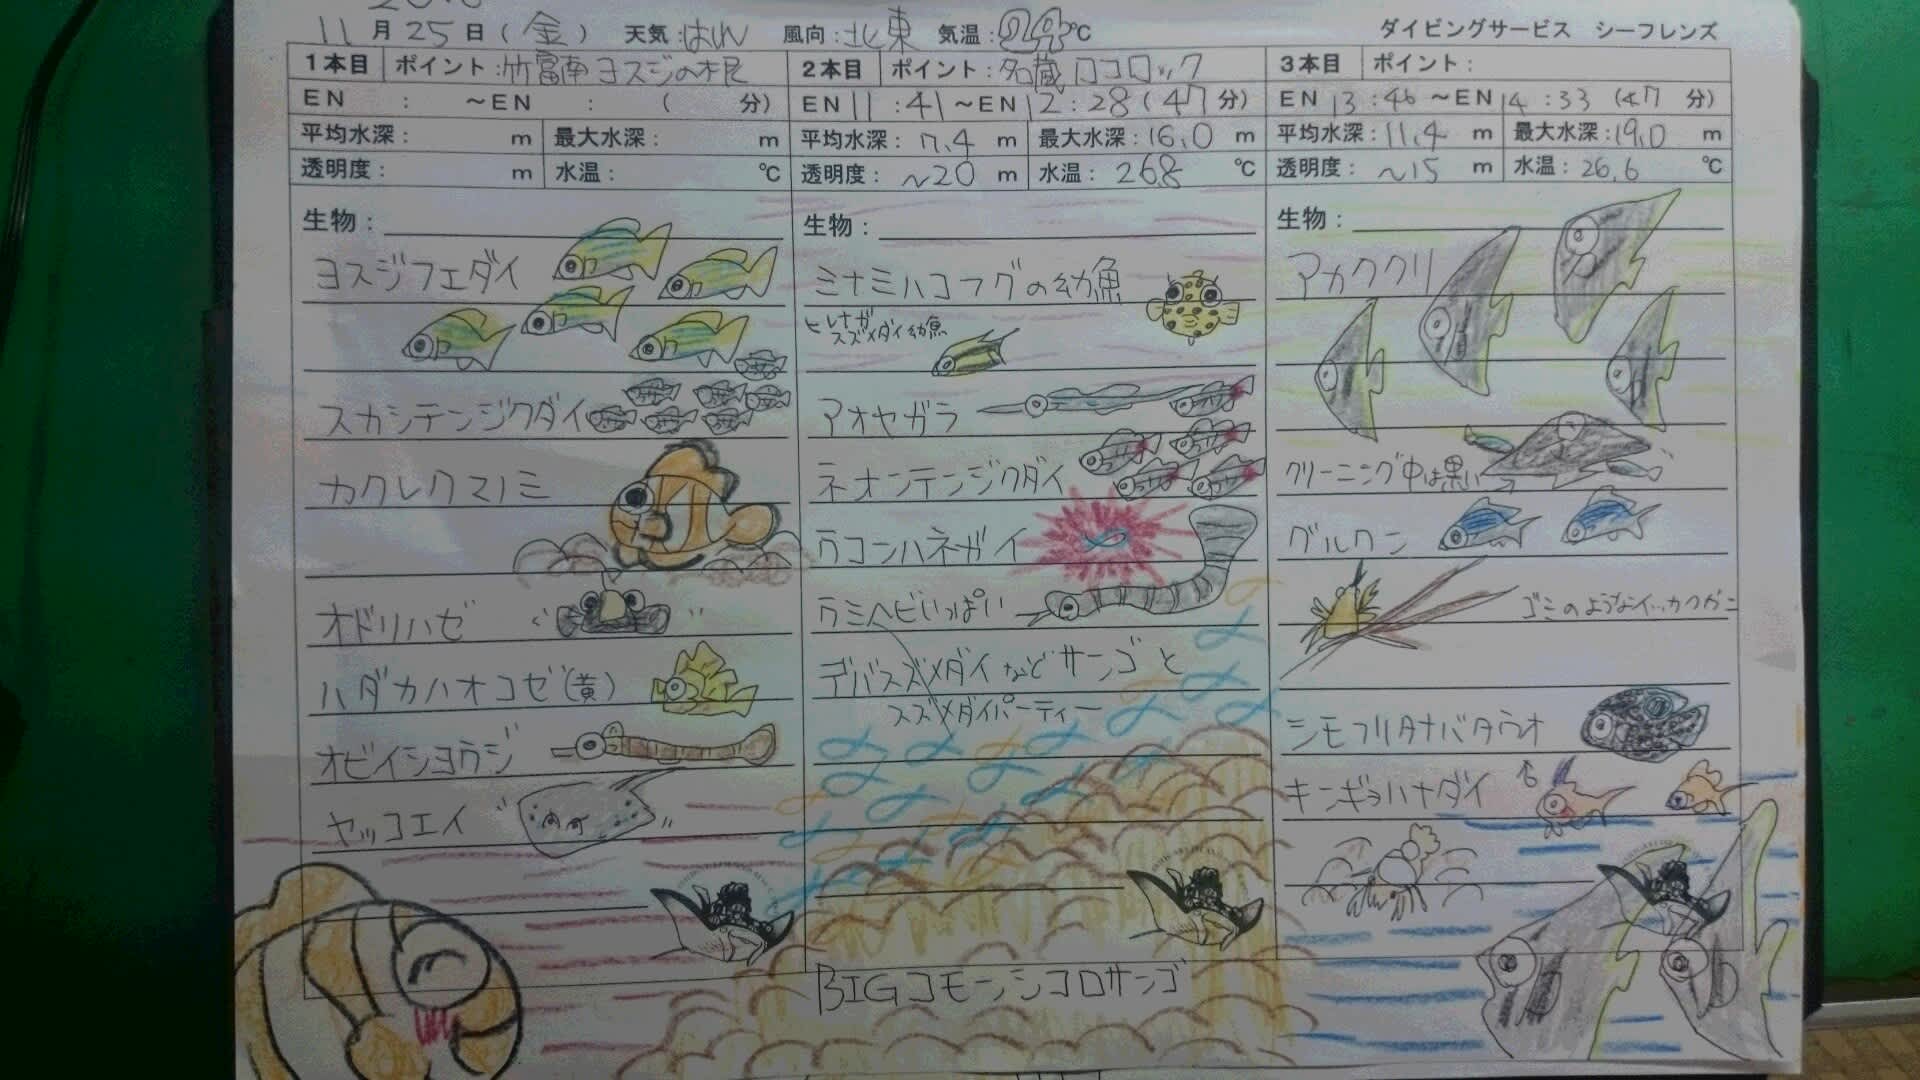 11月25日(金) 天気:はれ 風向:北東 気温:29℃ ダイビングサービス シーフレンズ
1本目 ポイント:竹富南ヨスジの根
EN : ~EN : ( 分)
平均水深: m 最大水深: m
透明度: m 水温: ℃
生物:
ヨスジフエダイ
スカシテンジクダイ
カクレクマノミ
オドリハゼ
ハダカハオコゼ(黄)
オビイショウジ
ヤッコエイ
2本目 ポイント:名蔵ロコロック
EN 11:41~EN 12:28(47分)
平均水深:7.4m 最大水深:16.0m
透明度:~20m 水温:26.8℃
生物:
ミナミハコフグの幼魚
ヒレナガ
スズメダイ幼魚
アオヤガラ
ネオンテンジクダイ
ウコンハネガイ
ウミヘビいっぱい
デバスズメダイなどサンゴと
スズメダイパーティー
BIGコモンシコロサンゴ
3本目 ポイント:
EN 13:46~EN 14:33(47分)
平均水深:11.4m 最大水深:19.0m
透明度:~15m 水温:26.6℃
生物:
アカククリ
クリーニング中は黒い
グルクン
ゴミのようなイッカクガニ
シモフリタナバタウオ
キンギョハナダイ